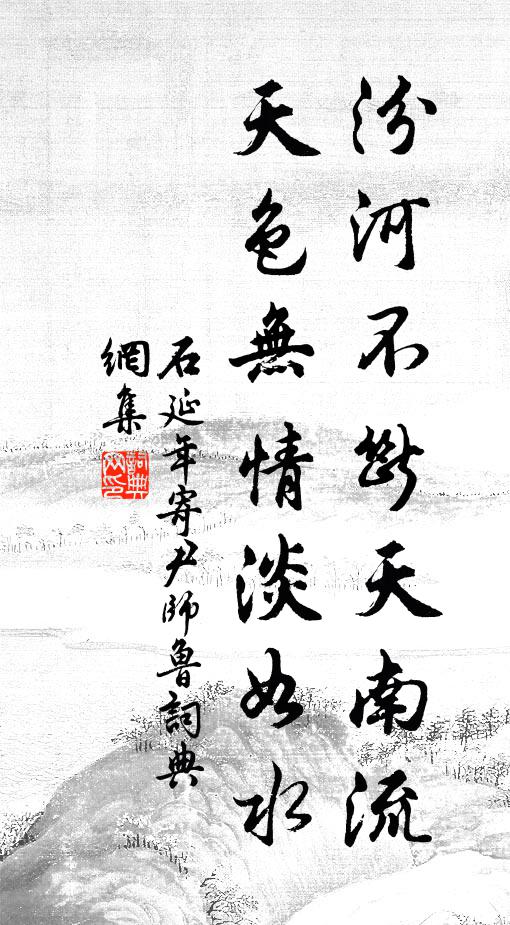 汾河不斷天南流
天色無情淡如水
石延年寄尹師魯詞典
網集
詞典網印